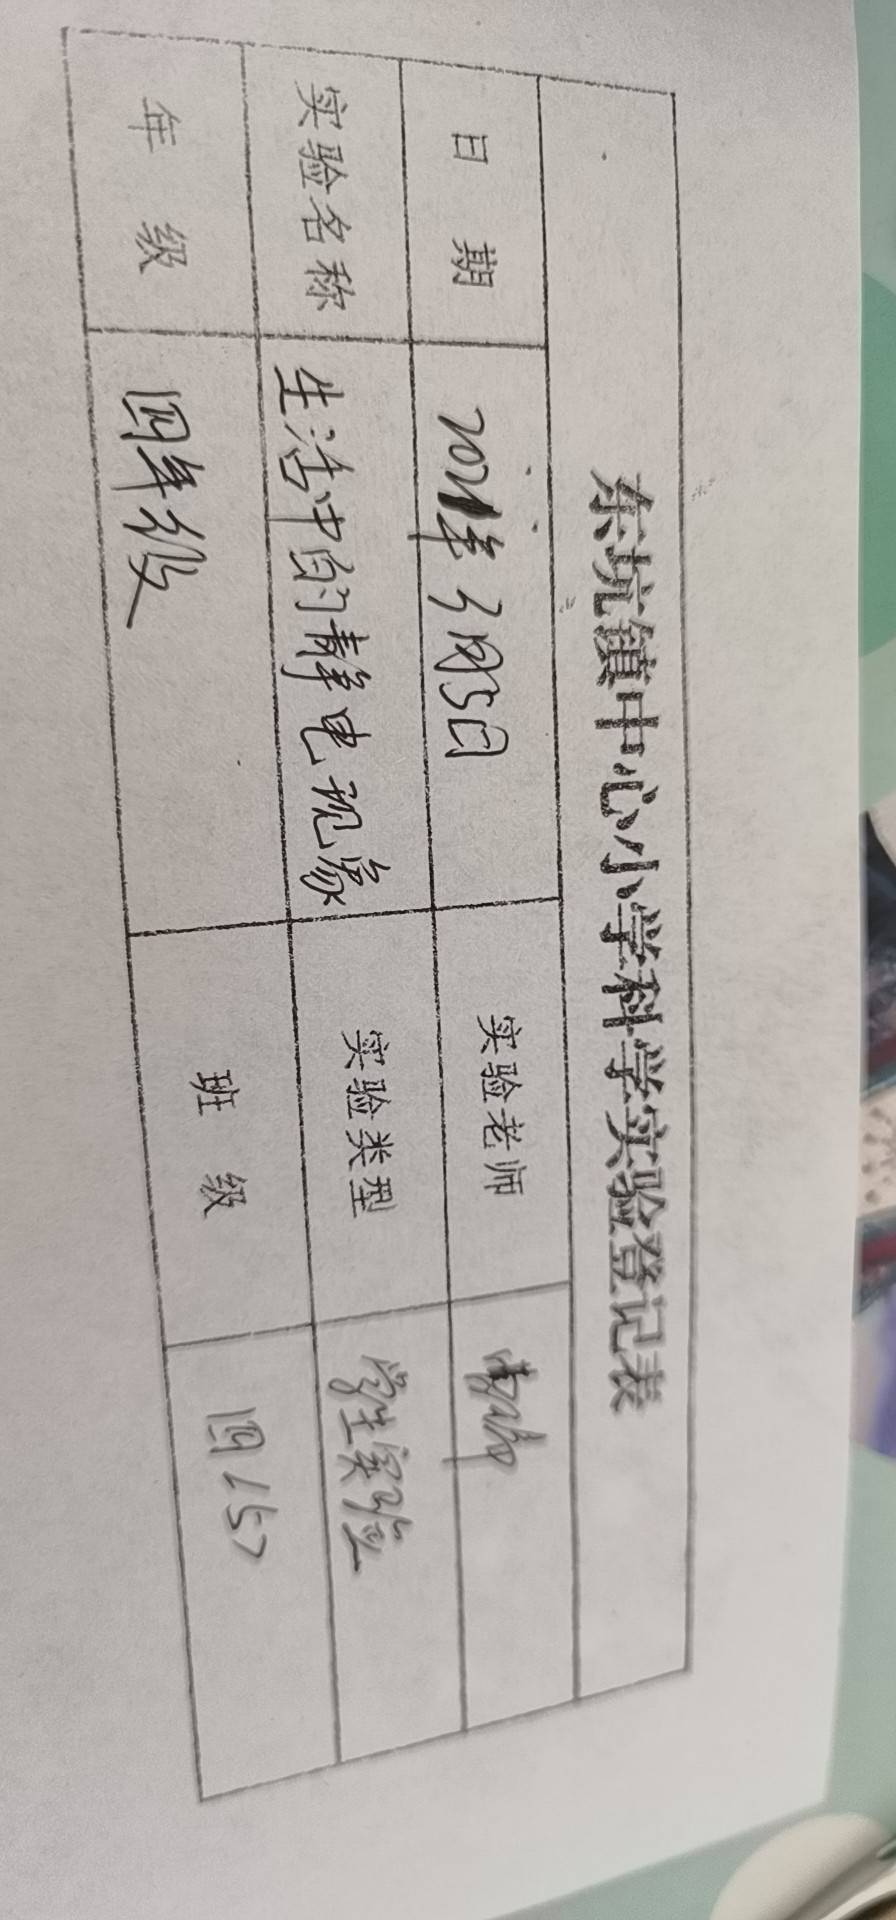 东坑镇中心小学科学实验登记表
日期 2021年3月5日 实验老师
实验名称 生活中的静电现象 实验类型 学生实验
年级 四年级 班级 四(5)